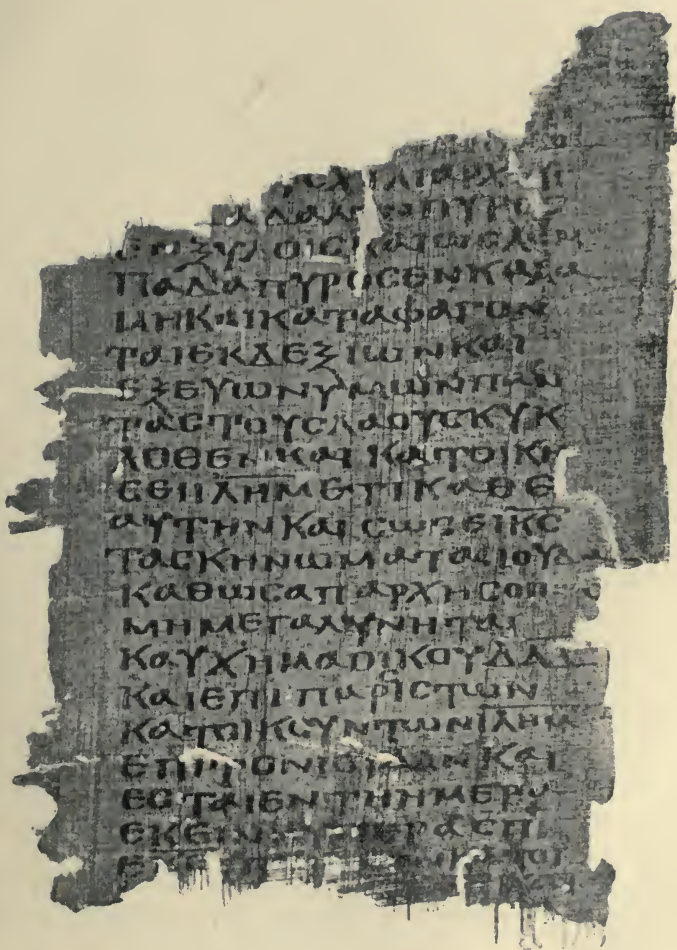 ΧΙΛΙΑΡΧ
ΔΑΛΟΝ ΠΥΡΟC
ΕΝΞΥΛΟΙCΚΑΙΩCΛΑΜ
ΠΑΔΑΠΥΡΟCΕΝΚΑΛΑ
ΜΗΚΑΙΚΑΤΑΦΑΓΟΝ
ΤΑΙΕΚΔΕΞΙΩΝΚΑΙ
ΕΞΕΥΙΩΝΥΜΩΝΠΑΝ
ΤΑCΤΟΥCΛΑΟΥCΚΥΚ
ΛΟΘΕΝΚΑΙΚΑΤΟΙΚΗ
CΕΙΙΛΗΜΕΤΙΚΑΘΕ
ΑΥΤΗΝΚΑΙCΩΖΕΙΚC
ΤΑCΚΗΝΩΜΑΤΑΙΟΥΔΑ
ΚΑΘΩCΑΠΑΡΧΗCΟΠΩC
ΜΗΜΕΓΑΛΥΝΗΤΑΙ
ΚΑΥΧΗΜΑΟΙΚΟΥΔΑΔ
ΚΑΙΕΠΙΠΑΡΙCΤΩΝ
ΚΑΤΟΙΚΟΥΝΤΩΝΙΛΗΜ
ΕΠΙΤΟΝΙΟΥΔΑΝΚΑΙ
ΕCΤΑΙΕΝΤΗΗΜΕΡΑ
ΕΚΕΙΝΗΥΠΕΡΑCΠΙ